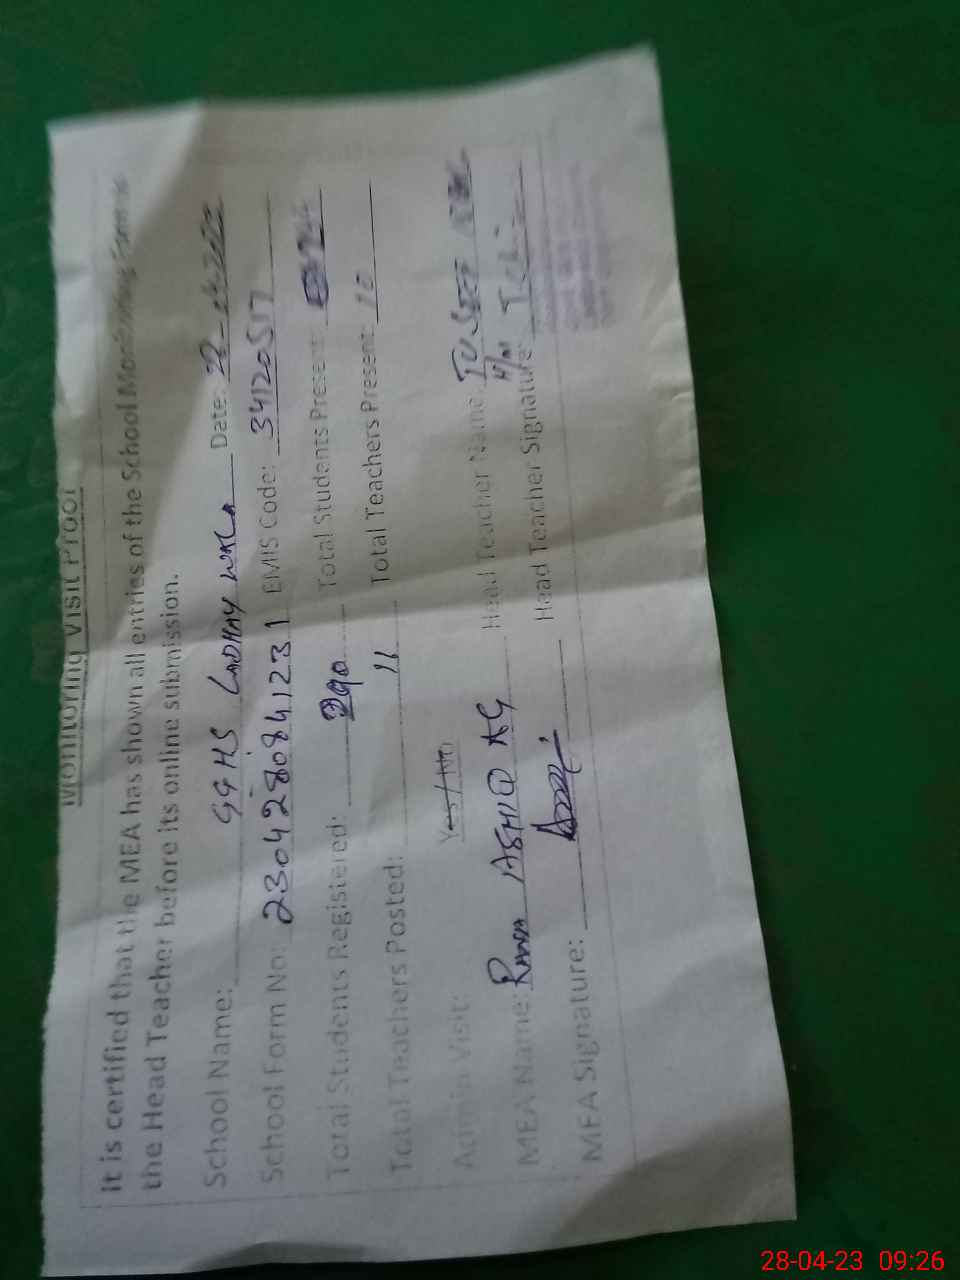 Monitoring Visit Proof
It is certified that the MEA has shown all entries of the School Monitoring Form to
the Head Teacher before its online submission.
School Name: GGHS LADHAY WALA Date: 28-
School Form No: 2304280841231 EMIS Code: 34120517
Total Students Registered: 290 Total Students Present:
Total Teachers Posted: 11 Total Teachers Present: 10
Admin Visit: Yes/No
MEA Name: RANA ASHIQ Head Teacher Name:
MEA Signature: Head Teacher Signature:
28-04-23 09:26